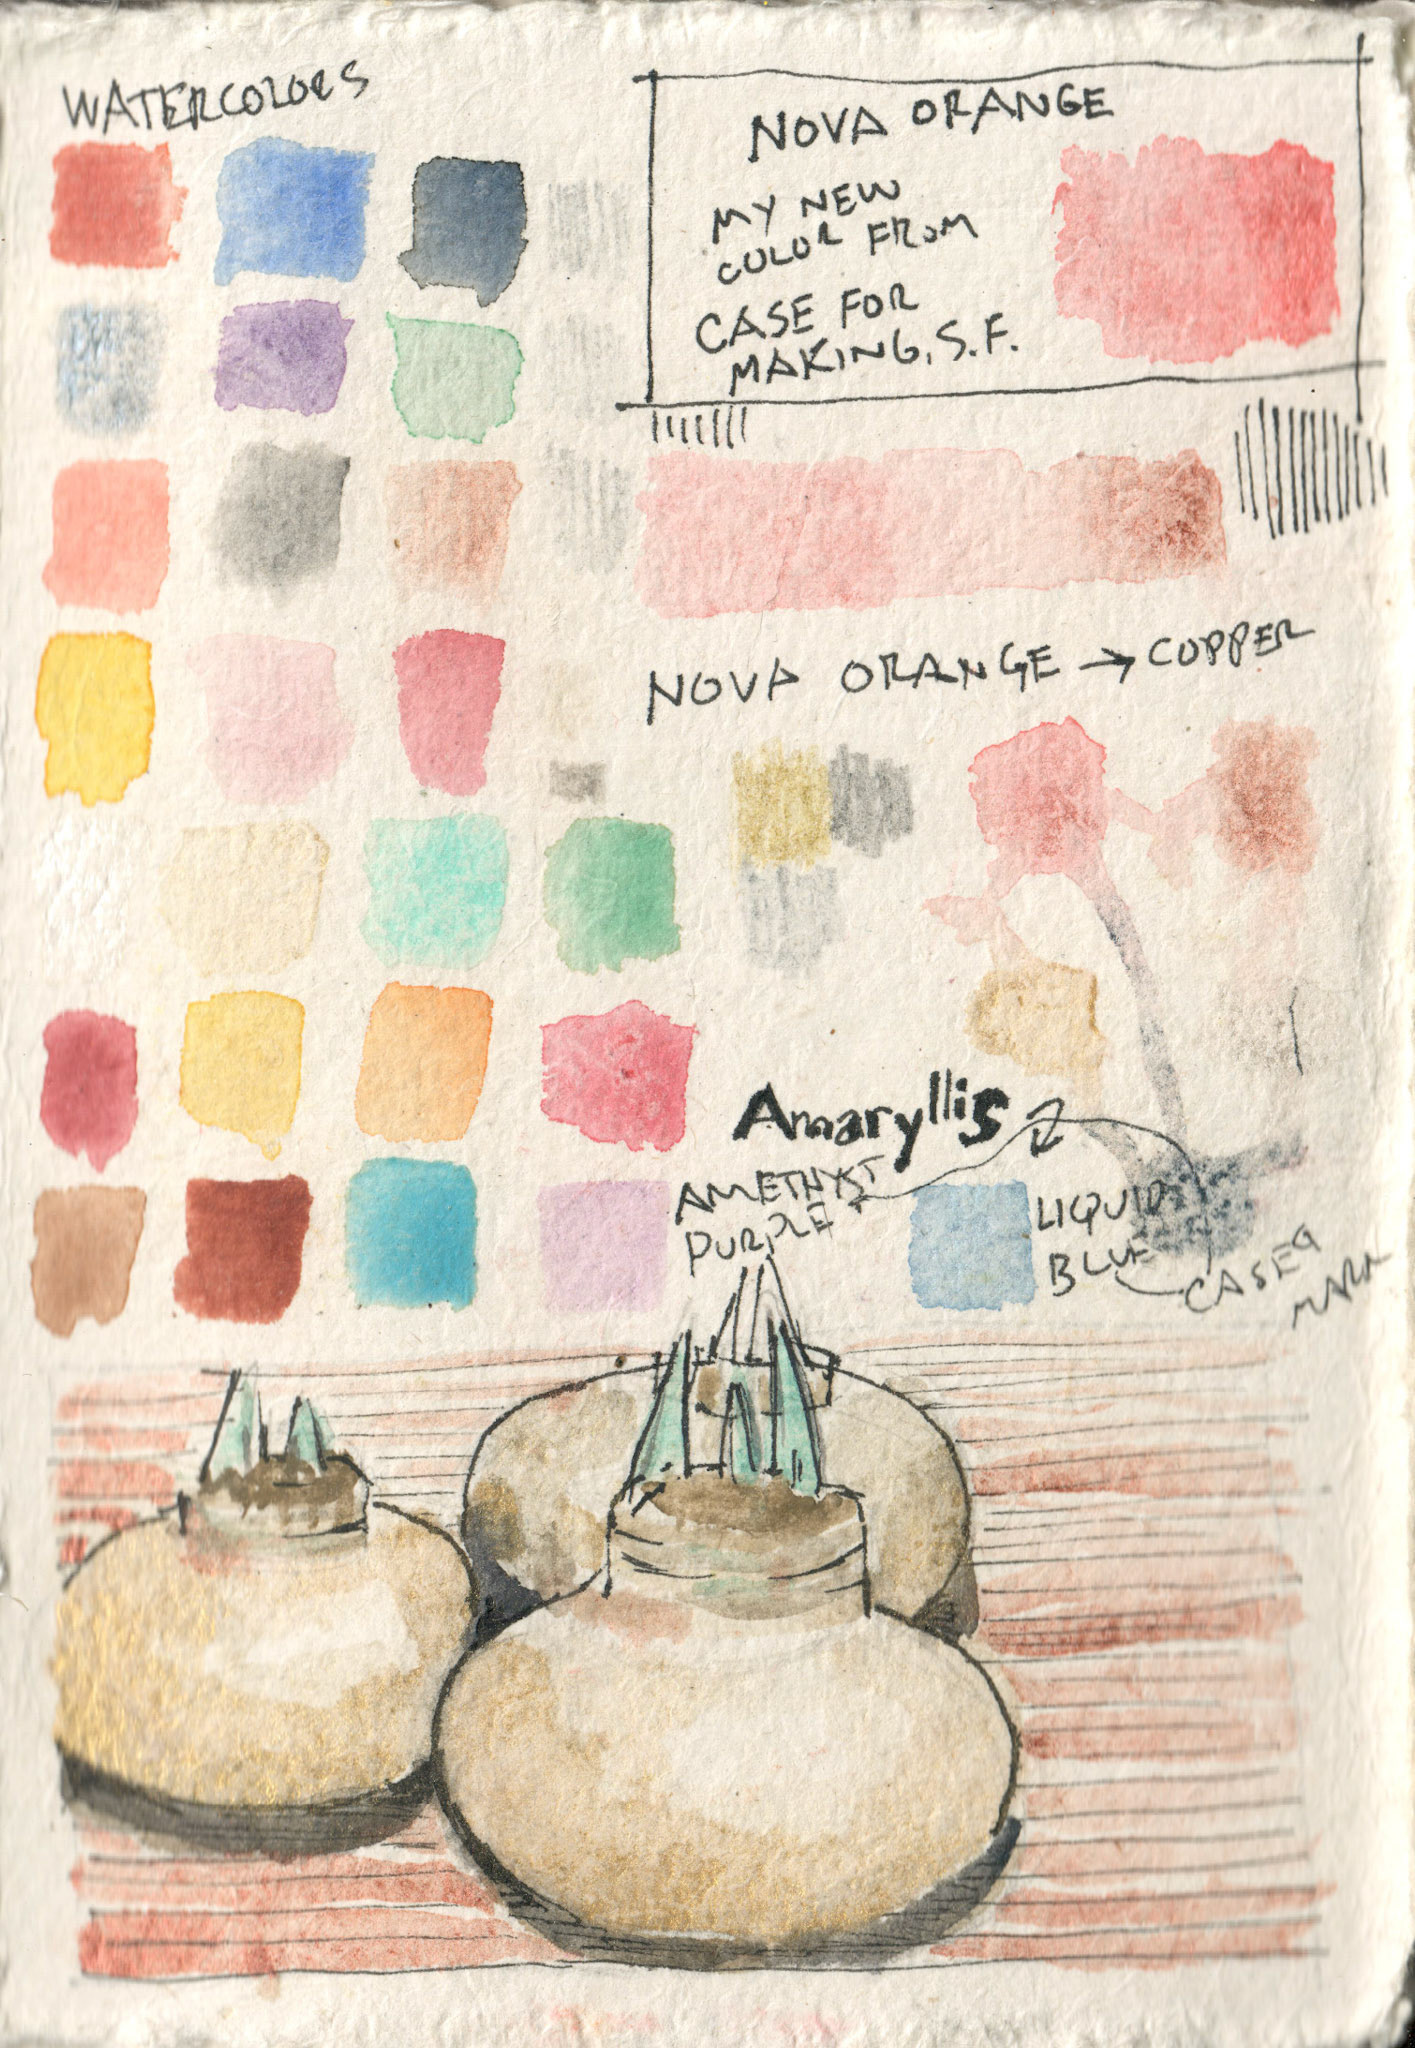 WATERCOLORS
NOVA ORANGE
MY NEW
COLOR FROM
CASE FOR
MAKING, S.F.
NOVA ORANGE → COPPER
Amaryllis
AMETHYST
PURPLE
LIQUID
BLUE
CASE 4
MARK